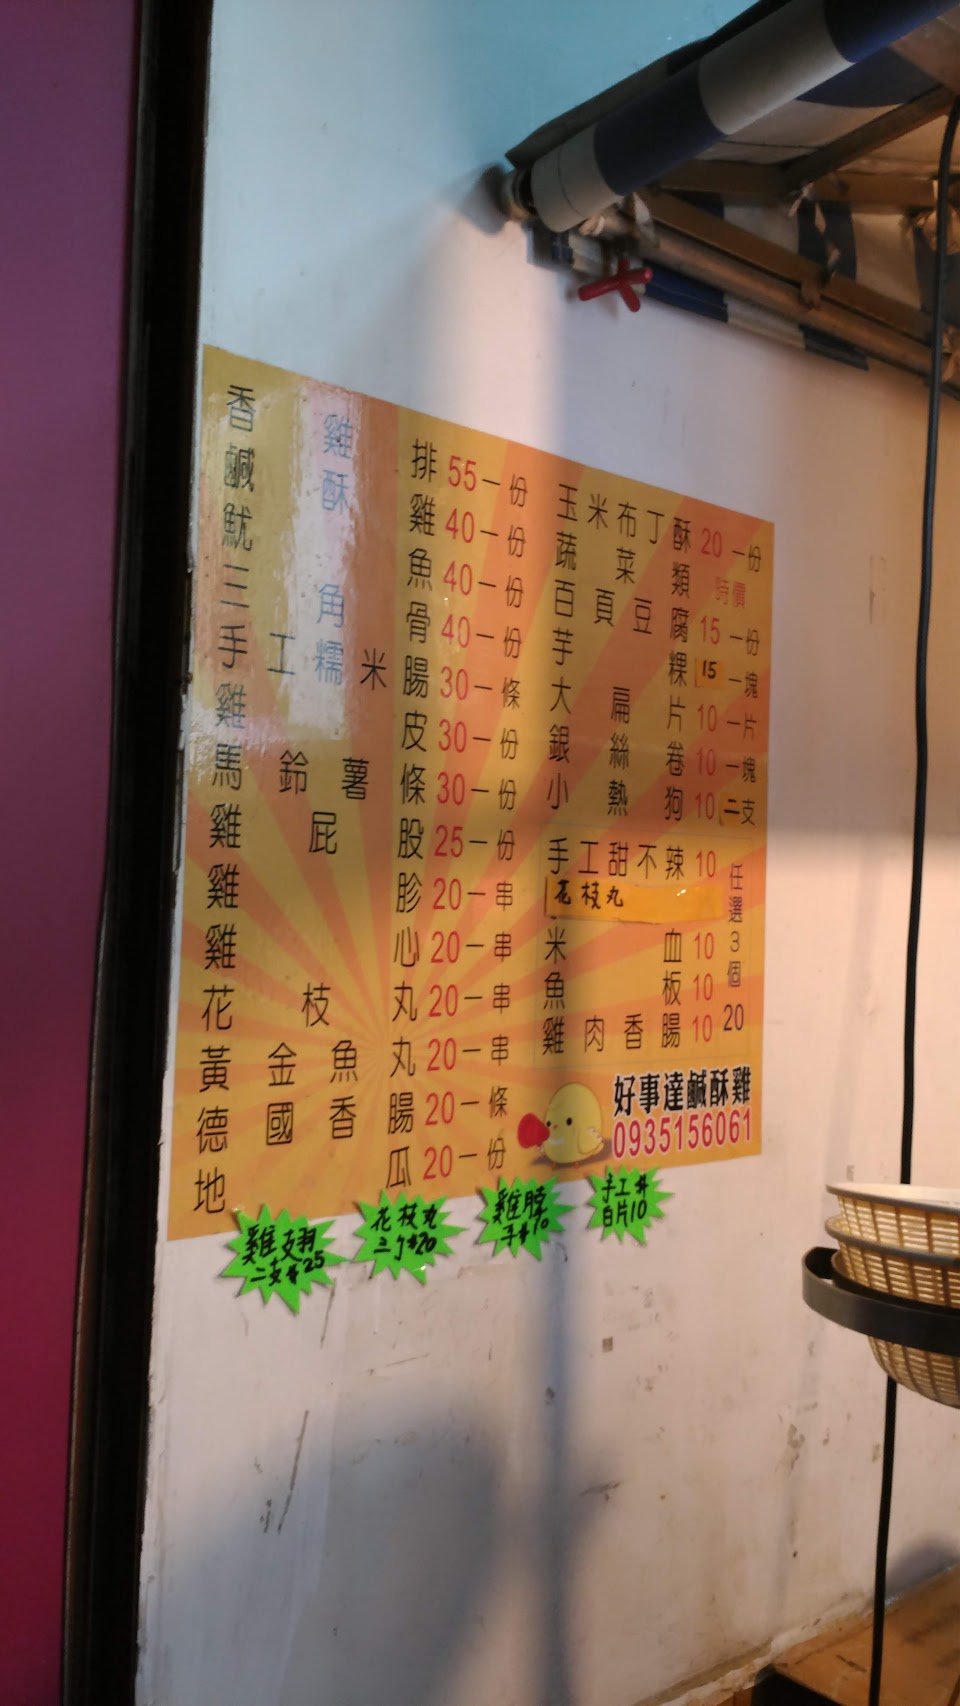 香雞排55一份
鹹酥雞40一份
魷魚40一份
三角骨40一份
手工糯米腸30一條
雞皮30一份
馬鈴薯條30一份
雞屁股25一份
雞胗20一串
雞心20一串
花枝丸20一串
黃金魚丸20一串
德國香腸20一條
地瓜20一份
玉米布丁酥20一份
蔬菜類時價
百頁豆腐15一份
芋粿15一塊
大扁片10一片
銀絲卷10一塊
小熱狗10二支
手工甜不辣10
花枝丸
米血10
魚板10
雞肉香腸10
任選3個20
好事達鹹酥雞
0935156061
雞翅
二支$25
花枝丸
三丁$20
雞脖
子$10
手工
白片10